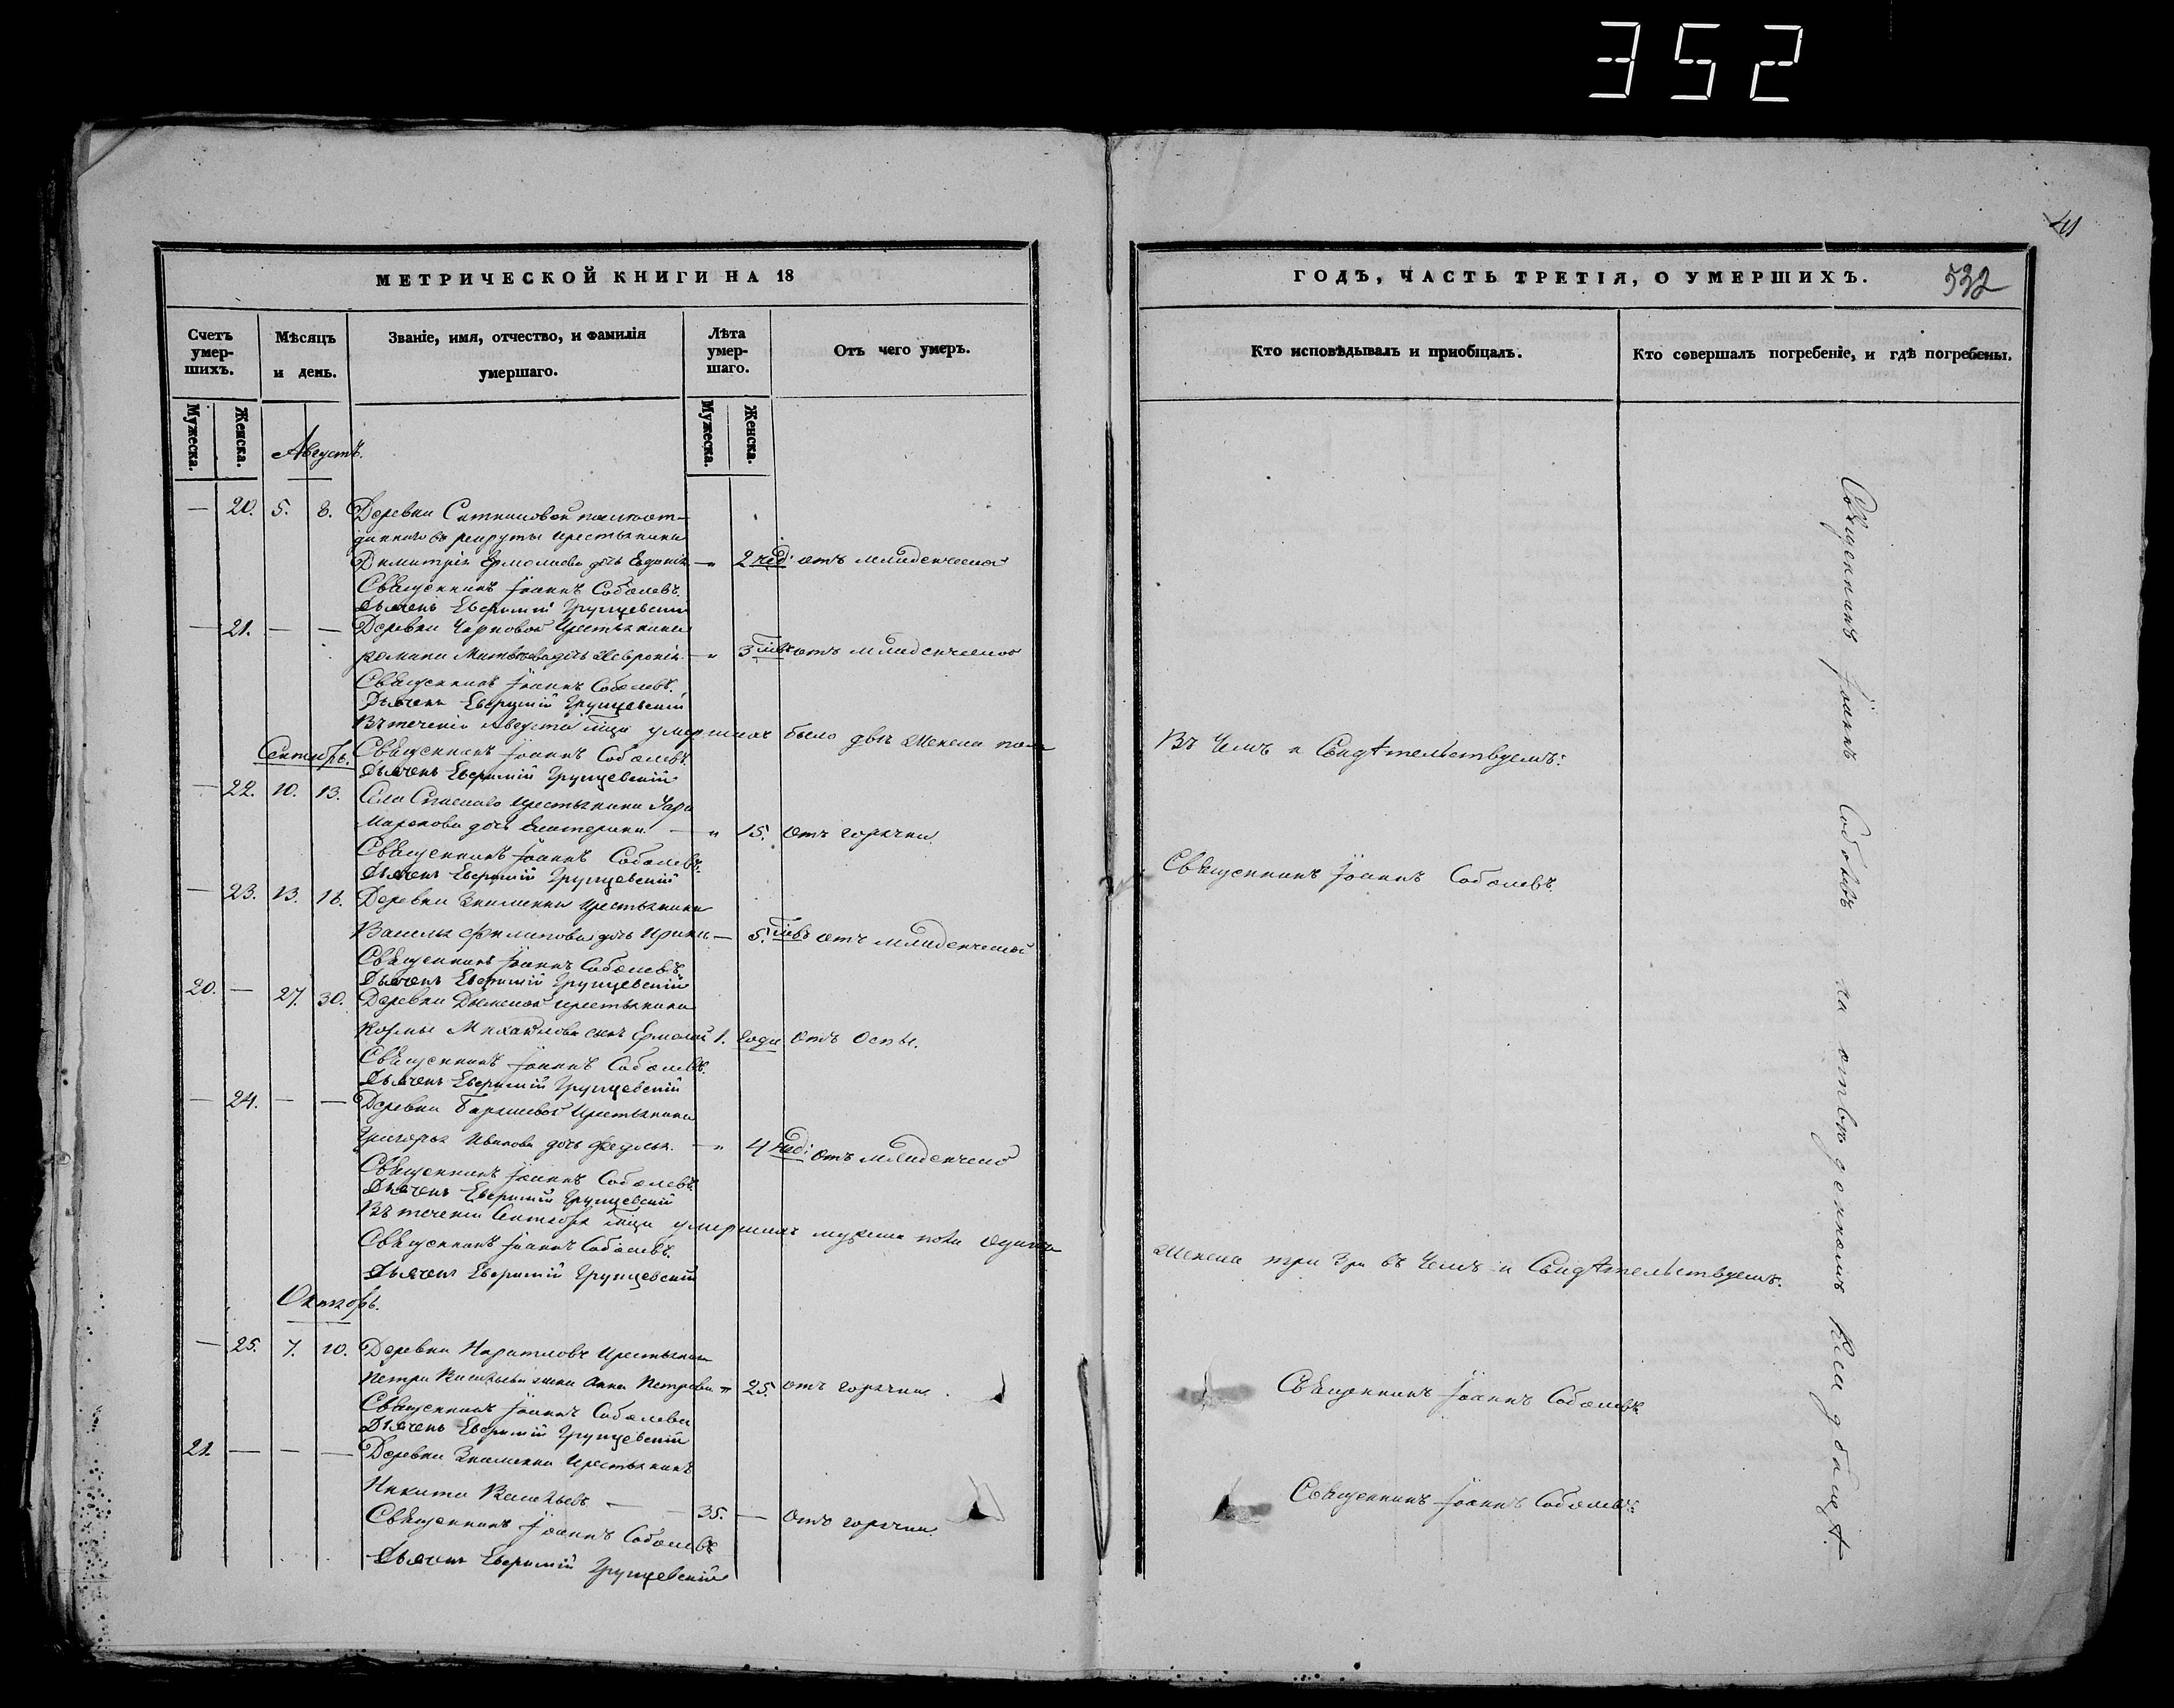 352
41
МЕТРИЧЕСКОЙ КНИГИ НА 18
ГОДЪ, ЧАСТЬ ТРЕТІЯ, О УМЕРШИХЪ.
532
Счетъ умер-шихъ.
Мѣсяцъ и день.
Званіе, имя, отчество, и фамилія умершаго.
Лѣта умер-шаго.
Отъ чего умеръ.
Кто исповѣдывалъ и пріобщалъ.
Кто совершалъ погребеніе, и гдѣ погребены.
Мужеска.
Женска.
Мужеска.
Женска.
Августъ.
— 20. 5. 8. Деревни
въ рекруты крестьянина
Димитрія Ермолаева дочь Евдокія — „ 2 нед: отъ младенческой
Священникъ Іоаннъ Соболевъ.
Дьячекъ Евфимій Грунцевскій
— 21. — — Деревни Чарковой крестьянина
Романа Матвѣева дочь Февронія — „ 3 отъ младенческой
Священникъ Іоаннъ Соболевъ.
Дьячекъ Евфимій Грунцевскій
Въ теченіи Августа м҃ца умершихъ было двѣ женска пола
Въ чемъ и Свидѣтельствуемъ:
Священникъ Іоаннъ Соболевъ.
Сентябрь.
Дьячекъ Евфимій Грунцевскій
— 22. 10. 13. Села Спасскаго крестьянина
Маркова дочь Екатерина — „ 15. отъ горячки
Священникъ Іоаннъ Соболевъ.
Священникъ Іоаннъ Соболевъ.
Дьячекъ Евфимій Грунцевскій
— 23. 13. 16. Деревни Знаменки крестьянина
Василья Филипова дочь Ирина — 5. отъ младенческой
Священникъ Іоаннъ Соболевъ.
Дьячекъ Евфимій Грунцевскій
20. — 27. 30. Деревни Дымской крестьянина
Козмы Михайлова сынъ Ермолай 1. года отъ оспы.
Священникъ Іоаннъ Соболевъ.
Дьячекъ Евфимій Грунцевскій
— 24. — — Деревни Барашевой крестьянина
Григорья Иванова дочь Федосья. — „ 4 нед: отъ младенческой
Священникъ Іоаннъ Соболевъ.
Дьячекъ Евфимій Грунцевскій
Въ теченіи Сентября м҃ца умершихъ мужска пола одинъ
женска три въ чемъ и Свидѣтельствуемъ.
Священникъ Іоаннъ Соболевъ.
Дьячекъ Евфимій Грунцевскій
Октябрь.
— 25. 7. 10. Деревни крестьянина
Петра Васильева жена Анна Петрова „ 25. отъ горячки.
Священникъ Іоаннъ Соболевъ.
Священникъ Іоаннъ Соболевъ
Дьячекъ Евфимій Грунцевскій
21. — — — Деревни Знаменки крестьянинъ
Никита Васильевъ — — 35. — отъ горячки.
Священникъ Іоаннъ Соболевъ.
Священникъ Іоаннъ Соболевъ
Дьячекъ Евфимій Грунцевскій
Священникъ Іоаннъ Соболевъ на отведенномъ кладбищѣ.